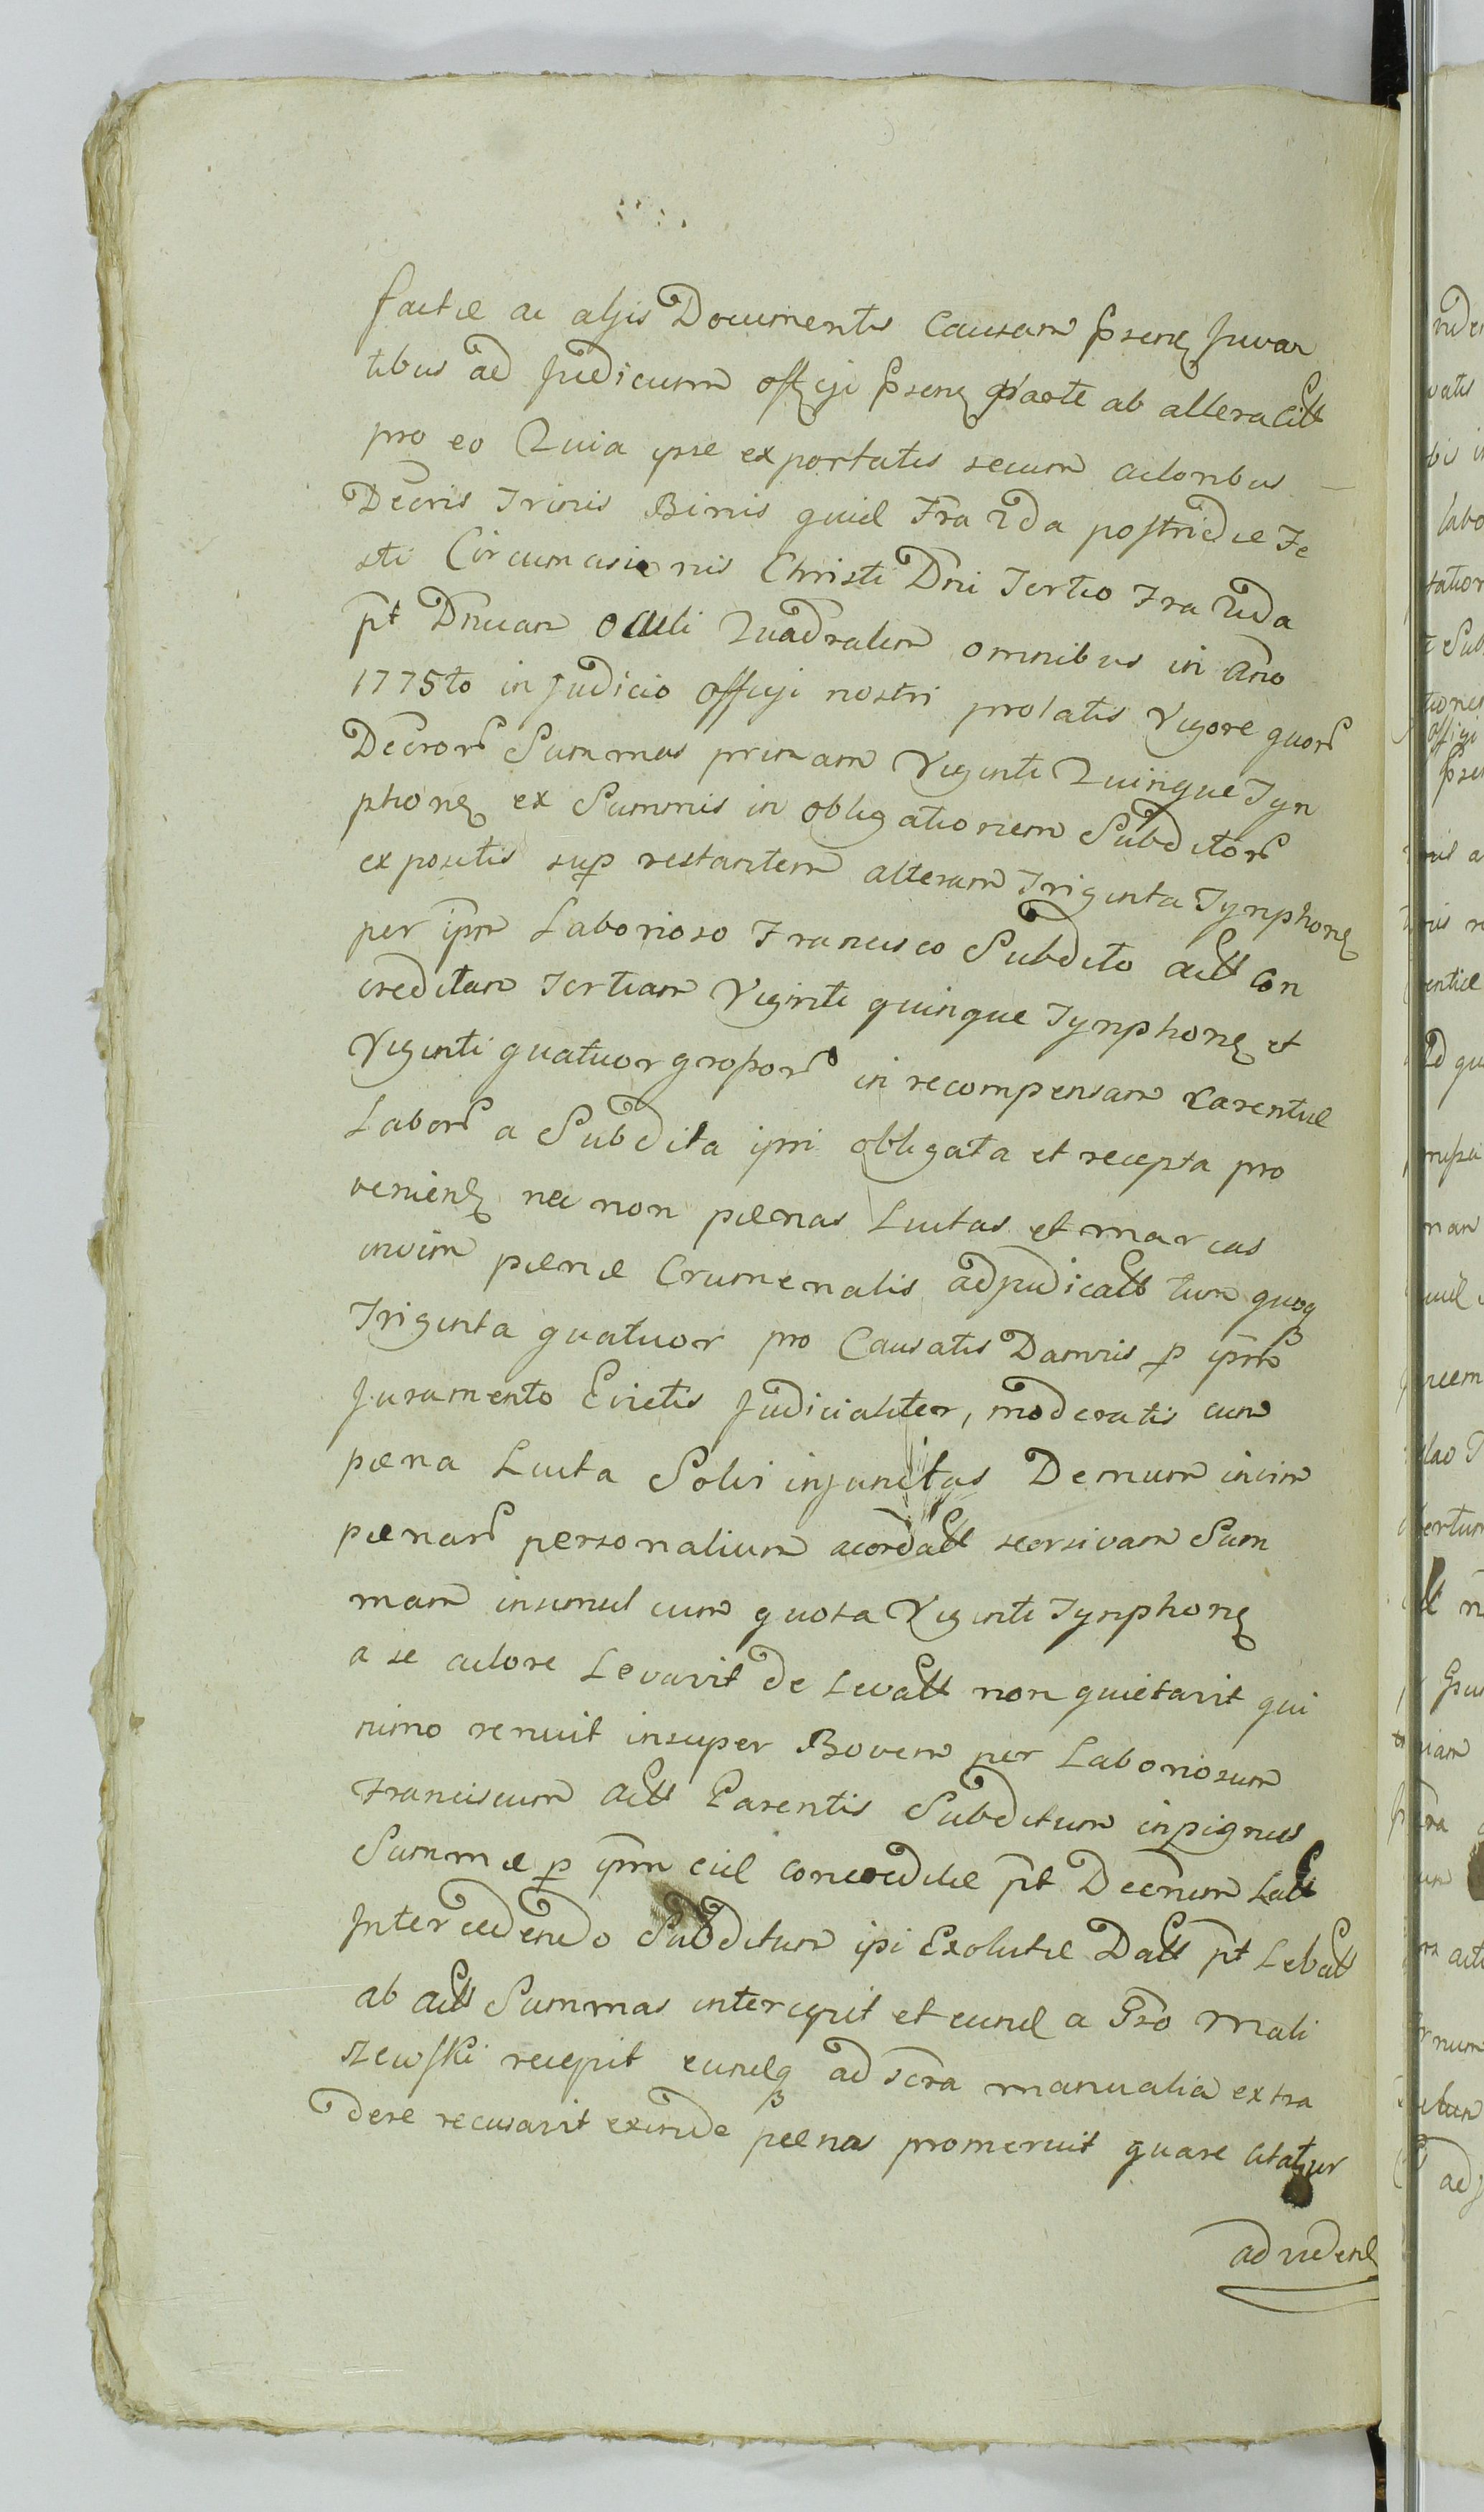 factæ ac alijs Documentis Causam p̄senẽ Juvan
tibus ad Judicium officji p̄senẽ parte ab altera citt
pro eo Quia ipse exportatis secum actoribus —
Decris Trinis Binis quid Fra 2da postridie Fe
sti Circumcisionis Christi Dni Tertio Fra 2da
pt Dnicam Oculi Quadralem omnibus in Ano
1775to in Judicio officji nostri prolatis Vigore quor
Decror Summas primam Viginti Quinque Tyn
phonẽ ex Summis in obligationem Subditor
expositis sup restantem alteram Triginta Tynphonẽ
per ipm Laborioso Francisco Subdito actt Con
creditam Tertiam Viginti quinque Tynphonẽ et
Viginti quatuor grossor in recompensam carentiæ
Labor a Subdita ipsi obligata et recepta pro
venienẽ nec non pænas Luitas et marcas
invim pænæ Crumenalis adjudicatt tum quoq
Triginta quatuor pro Causatis Damnis p ipm
Juramento Evictis Judicialiter, moderatis cum
pæna Luita Solvi injunctas Demum invim
pænar personalium acordatt seorsivam Sum
mam insimul cum quota Viginti Tynphonẽ
a se actore Levavit de Levatt non quietavit qui
nimo renuit insuper Bovem per Laboriosum
Franciscum actt Parentis Subditum in pignus
Summæ p ipm eid concreditæ pt Decrum Latt
Intercedendo Subditum ipi Exolutæ Datt pt Lebatt
ab actt Summas intercepit et eund a Gso Mali
szewski recepit eundq ad scra manualia extra
dere recusavit exinde pænas promeruit quare citatur
ad videnẽ